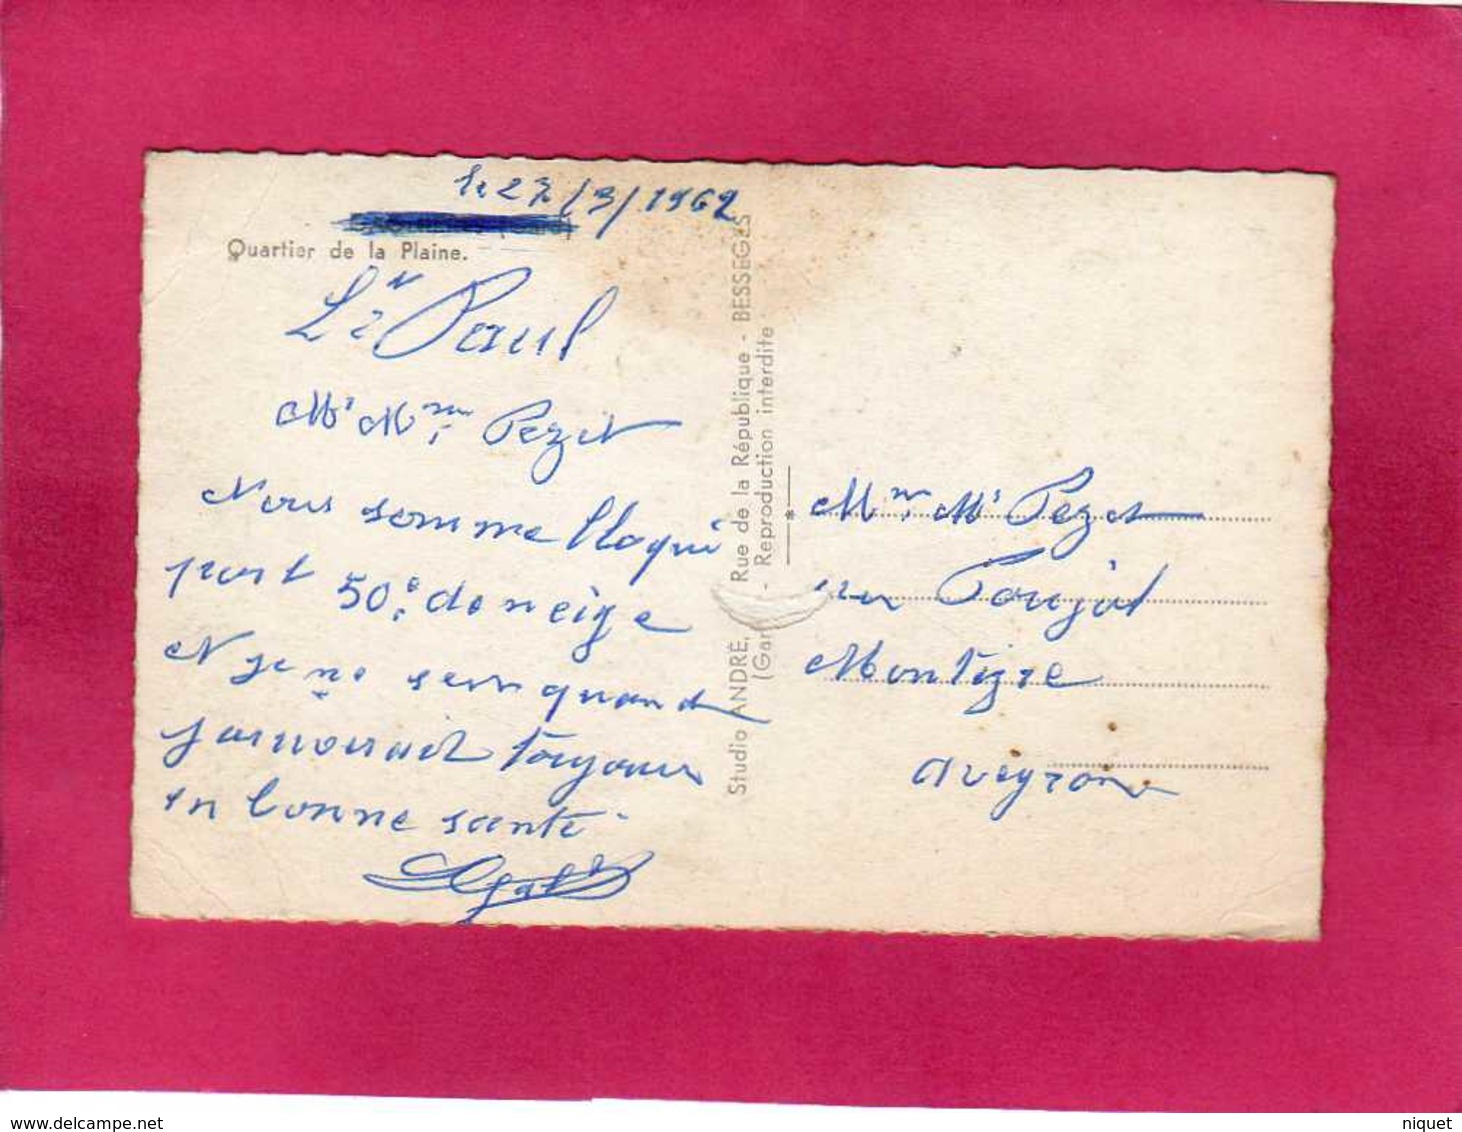 le 27/3/1962
Quartier de la Plaine.
Paul
Mr Mme Pezet
Nous somme bloqué
part 50c de neige
N je ne sais quand
jarriverait toujours
en bonne santé
Studio ANDRÉ, Rue de la République - BESSEGES
(Gar - Reproduction interdite
Mme Mr Pezet
au Poujol
Montégre
aveyron
niquet